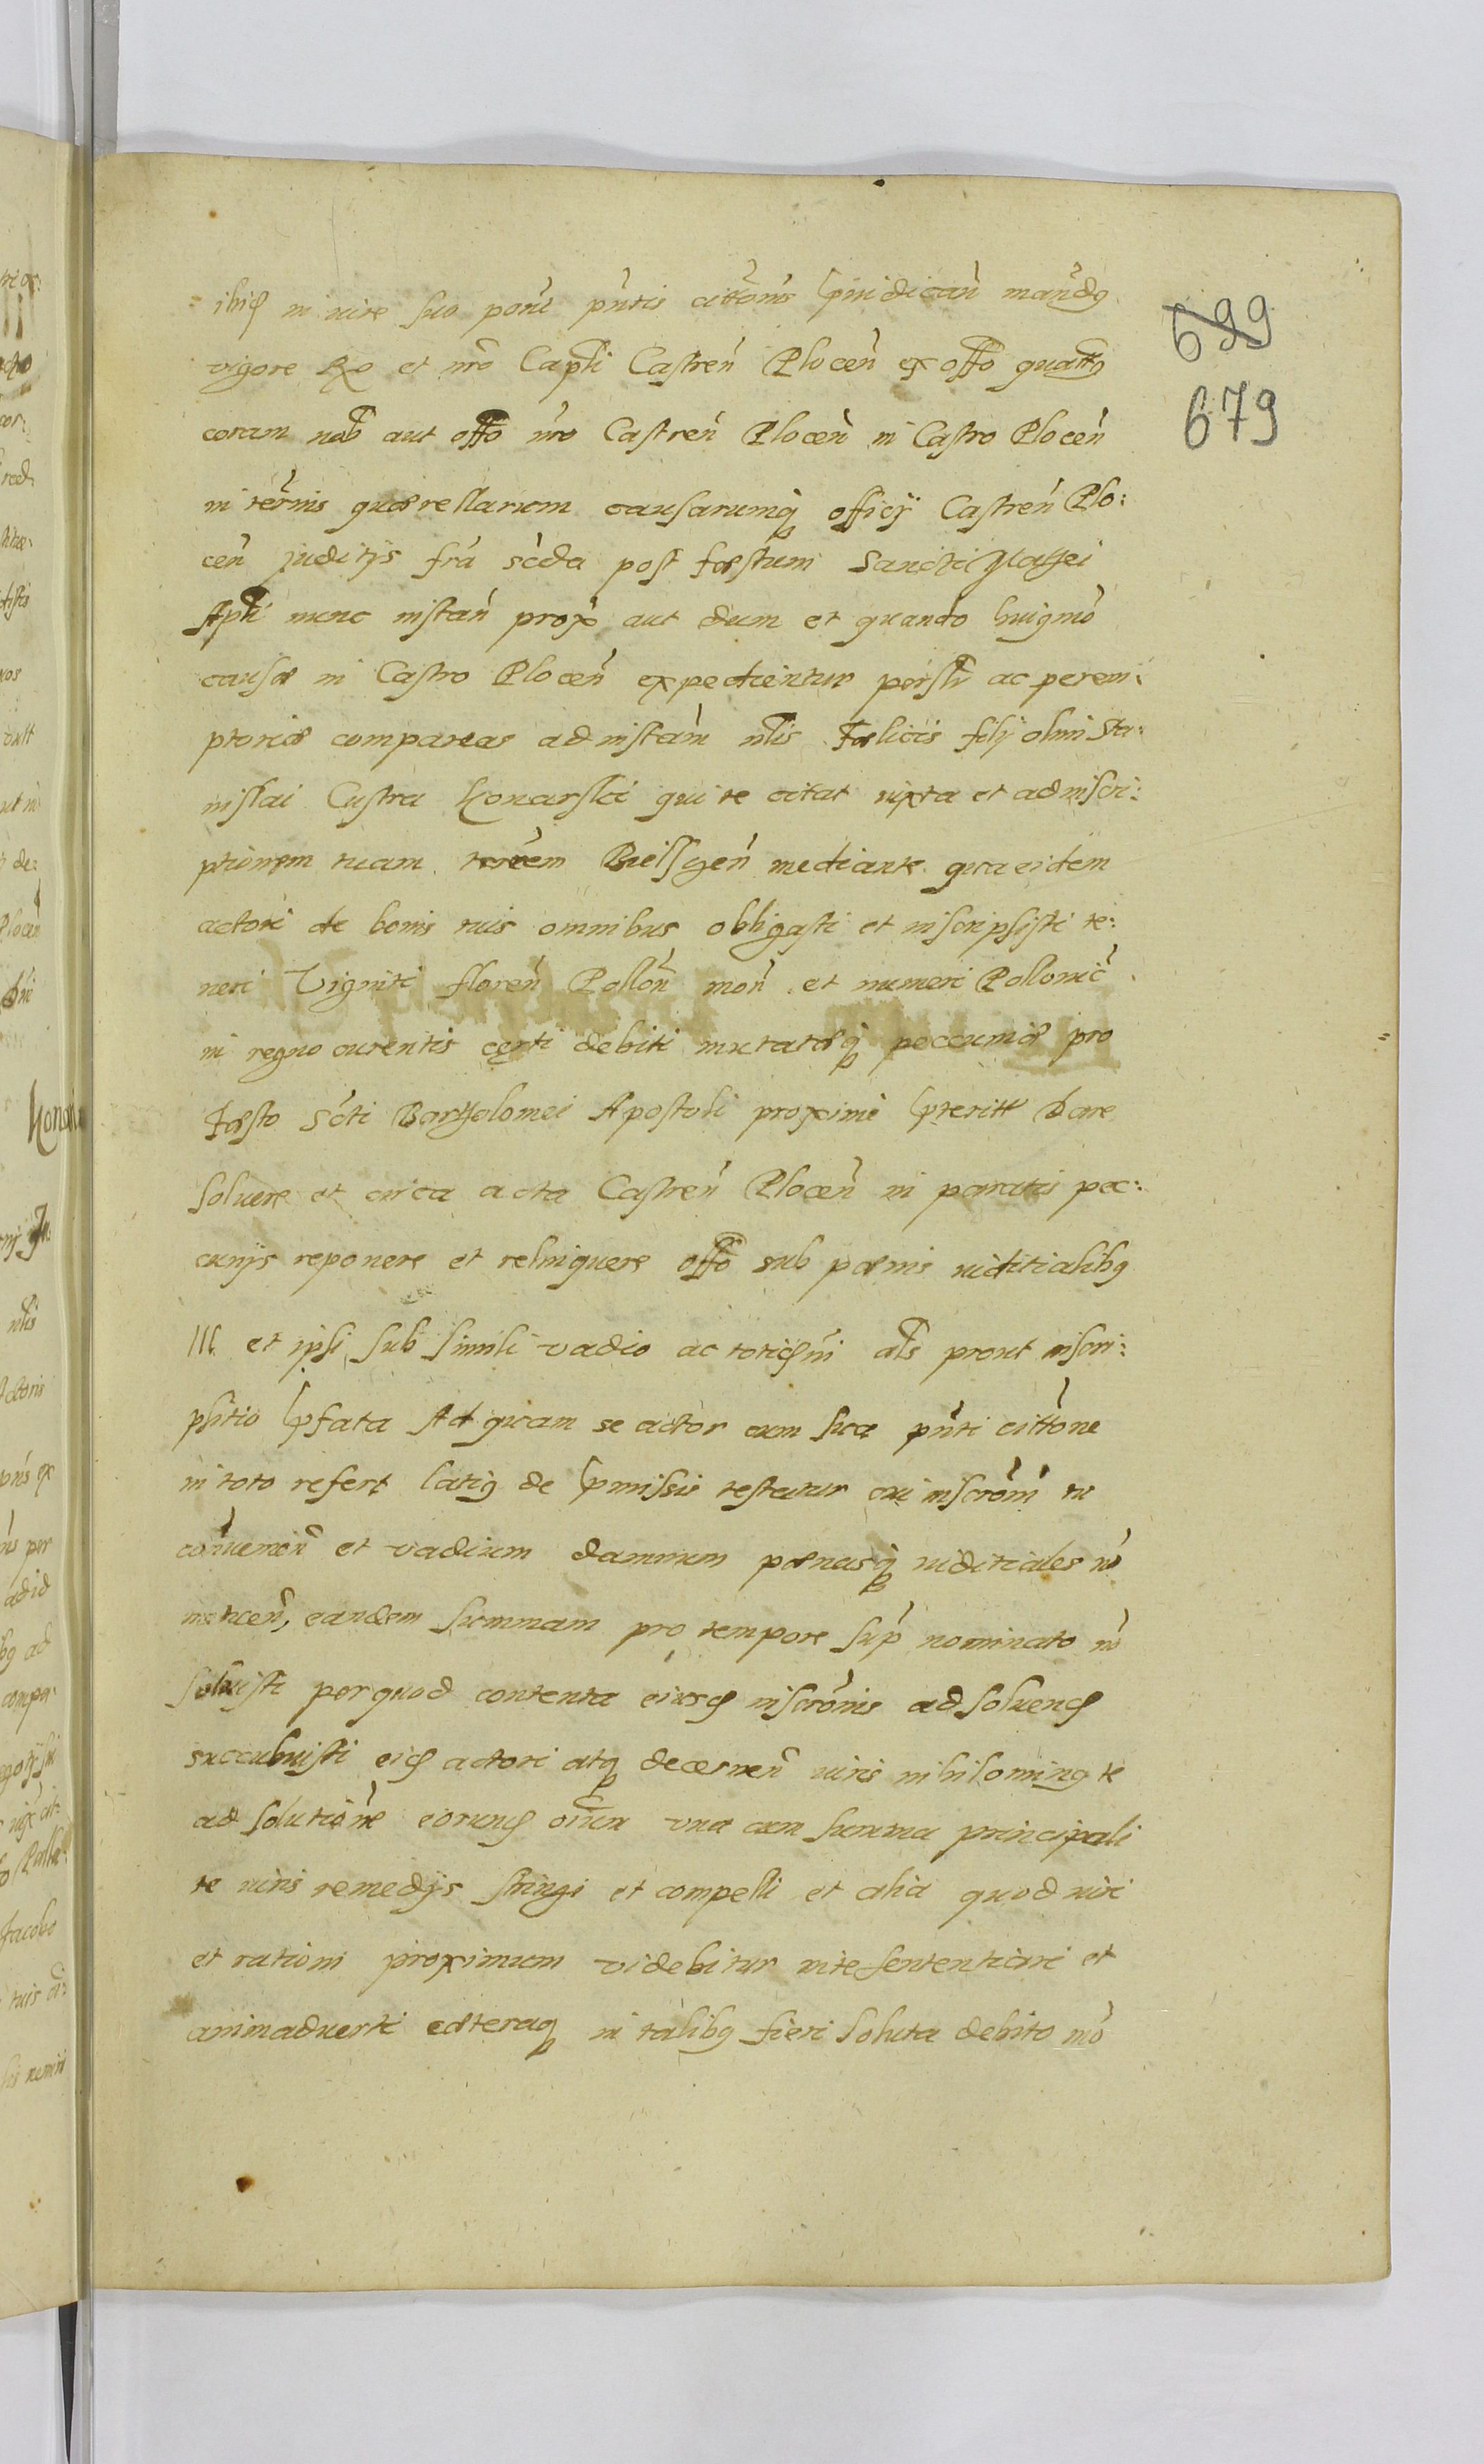 699
679
ibiq in iure suo ponē pn̄tis citt̄onis p̄iudicān mān̄dq
vigore R̄o et nr̄o Cap̄tli Castreñ Ploceñ ex off̄o quatt̄q
coram nob̄ aut off̄o nr̄o Castreñ Ploceñ in Castro Ploceñ
in ter̄nis quærellarum causarumq officij Castreñ Plo:
ceñ juditijs fr̄a sc̄da post fæstum Sancti Mathei
Ap̄li nunc instañ prox̄ aut dum et quando huiqmō
causæ in Castro Ploceñ expedientur pērsl̄r ac perem:
ptoriæ compareas ad instam̄ nl̄is Fælicis filij olim Sta:
nislai Custra Konarski qui te citat iuxta et ad inscri:
ptionem tuam ter̄rem Bielsgeñ mediante qua eidem
actori de bonis tuis omnibus obligasti et inscripsisti te:
neri Viginti floreñ Polloñ moñ et numeri Pollonic̄
in regno curentis certi debiti mutatæq peccuniæ pro
Fæsto Sc̄ti Bartholomei Apostoli proxime p̄teritt Dare
soluere et circa acta Castreñ Ploceñ in paratis pec:
cunijs reponere et relinquere off̄o sub pænis iuditialibq
III et ipsi sub simili vadio ac totiq̄m al̄s prout inscri:
ptitio p̄fata Ad quam se actor cum sua pn̄ti citt̄one
in toto refert latiq de p̄missis testatur cui inscrōni tu
cōnueneñ et vadium damnum pænasq iuditiales nō
metueñ, eandem summam pro tempore sup̄ nominato nō
soluisti per quod contenta eiusq inscrōnis ad soluenq
succubuisti eiq actori atq decerneñ iuris nihilominq te
ad solutionē eorunq oīum una cum summa principali
te iuris remedijs stringi et compelli et alia quod iuri
et rationi proximum videbitur inte sententiari et
animaduerti cæteraq in talibq fieri soluta debito mō